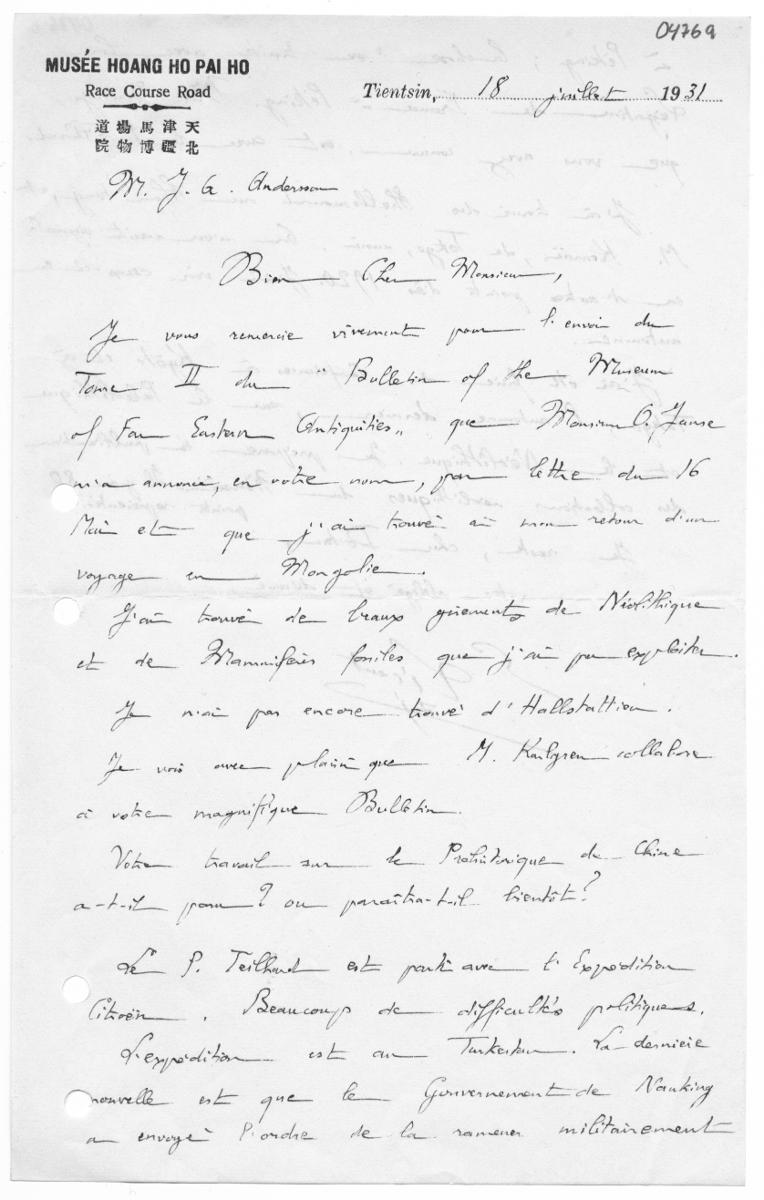 04769
MUSÉE HOANG HO PAI HO
Race Course Road
道場馬津天
院物博疆北
Tientsin, 18 juillet 1931
M. J. G. Andersson
Bien Cher Monsieur,
Je vous remercie vivement pour l'envoi du
Tome II du "Bulletin of the Museum
of Far Eastern Antiquities" que Monsieur O. Janse
m'a annoncé, en votre nom, par lettre du 16
Mai et que j'ai trouvé à mon retour d'un
voyage en Mongolie.
J'ai trouvé de beaux gisements de Néolithique
et de Mammifères fossiles que j'ai pu exploiter.
Je n'ai pas encore trouvé d'Hallstattien.
Je vois avec plaisir que M. Karlgren collabore
à votre magnifique Bulletin.
Votre travail sur le Préhistorique de Chine
a-t-il paru? ou paraîtra-t-il bientôt?
Le P. Teilhard est parti avec l'Expédition
Citroën. Beaucoup de difficultés politiques.
L'expédition est au Turkestan. La dernière
nouvelle est que le Gouvernement de Nanking
a envoyé l'ordre de la ramener militairement